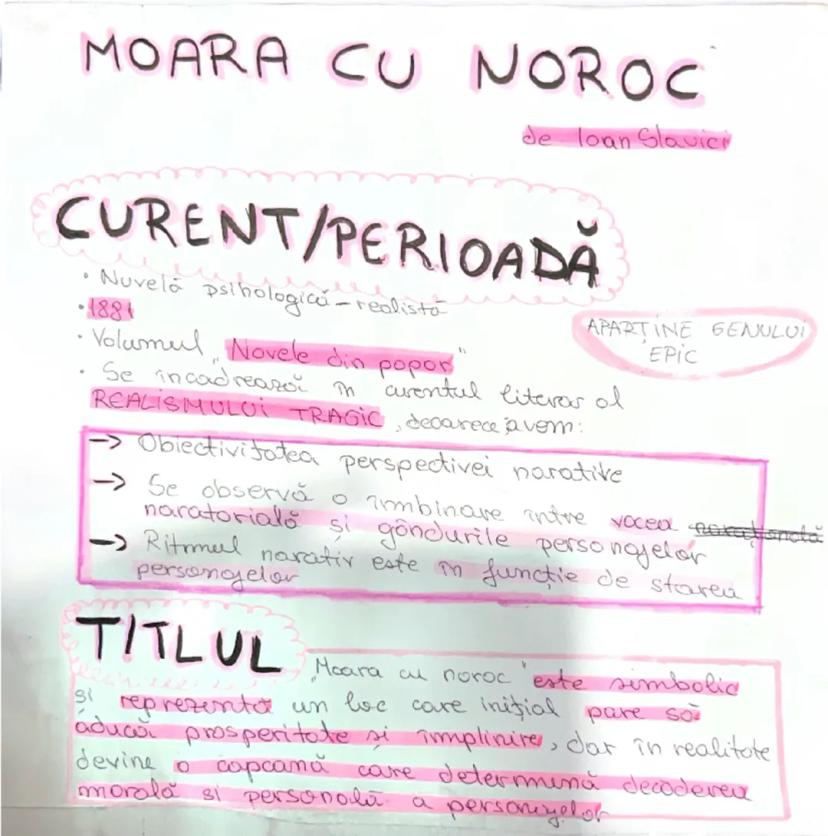 MOARA CU NOROC
de Ioan Slavici
CURENT/PERIOADĂ
• Nuvelă psihologică-realistă
• 1881
• Volumul „Novele din popor"
APARȚINE GENULUI
EPIC
• Se încadrează în curentul literar al
REALISMULUI TRAGIC, deoarece avem:
→ Obiectivitatea perspectivei narative
→ Se observă o îmbinare între vocea
naratorială și gândurile personajelor
→ Ritmul narativ este în funcție de starea
personajelor
TITLUL
„Moara cu noroc" este simbolic
și reprezintă un loc care inițial pare să
aducă prosperitate și împlinire, dar în realitate
devine o capcană care determină decăderea
morală și personală a personajelor